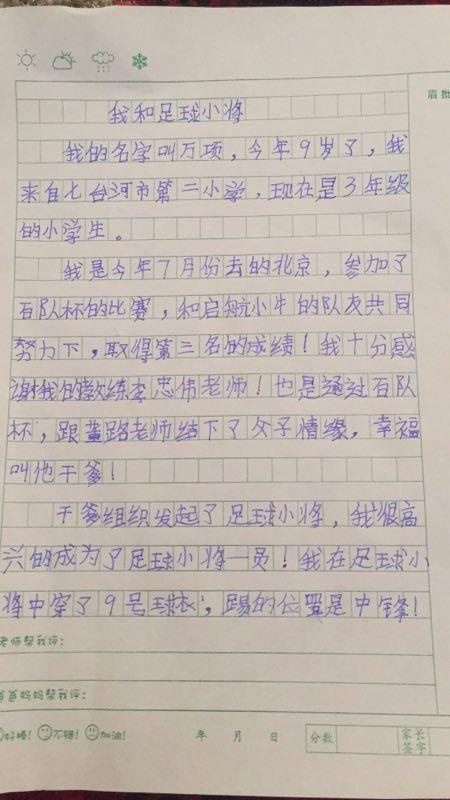 眉批
我和足球小将
我的名字叫万项，今年9岁了，我
来自七台河市第二小学，现在是3年级
的小学生。
我是今年7月份去的北京，参加了
百队杯的比赛，和启航小牛的队友共同
努力下，取得第三名的成绩！我十分感
谢我的教练李忠伟老师！也是通过百队
杯，跟董路老师结下了父子情缘，幸福
叫他干爹！
干爹组织发起了足球小将，我很高
兴的成为了足球小将一员！我在足球小
将中穿了9号球衣，踢的位置是中锋！
老师帮我评：
爸爸妈妈帮我评：
好棒！ 不错！ 加油！ 年 月 日 分数 家长签字